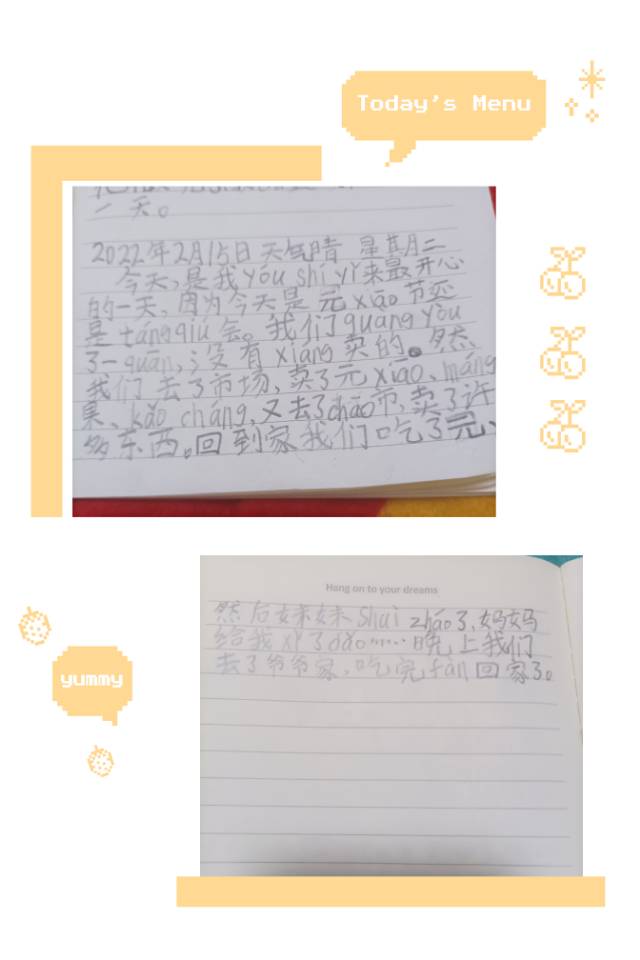 Today's Menu
一天。
2022年2月15日 天气晴 星其月二
今天,是我yóu shǐ yǐ来最开心
的一天,因为今天是元xiāo节还
是tángqiú会。我们guàng yòu
了一quān,没有xiǎng卖的。然
我们去了市场,卖了元xiāo、máng
果、kǎo cháng,又去了chāo市,卖了许
多东西。回到家我们吃了元、
Hang on to your dreams
然后妹妹Shuì zháo了,妈妈
给我xǐ了ǎo……晚上我们
去了爷爷家,吃完fàn回家了。
yummy